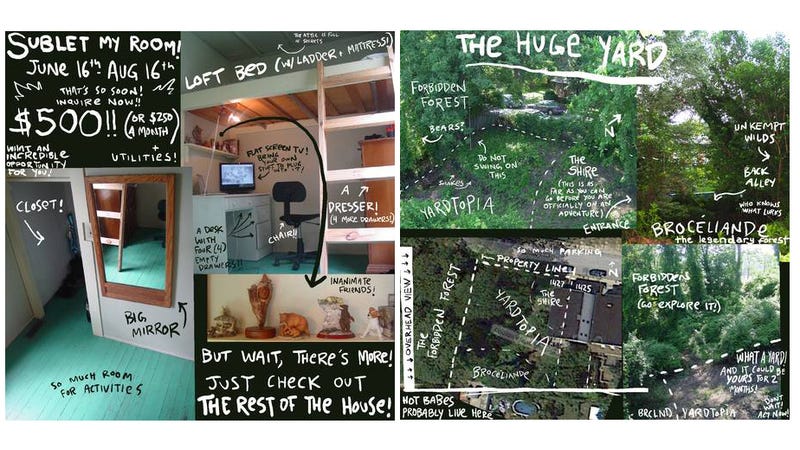 SUBLET MY ROOM!
JUNE 16th AUG 16th
THAT'S SO SOON!
INQUIRE NOW!!
$500!! (OR $250
A MONTH)
+
UTILITIES!
WHAT AN
INCREDIBLE
OPPORTUNITY
FOR YOU!
CLOSET!
BIG
MIRROR
SO MUCH ROOM
FOR ACTIVITIES
THE ATTIC IS FULL
OF SECRETS
LOFT BED (W/LADDER + MATTRESS!)
FLAT SCREEN TV!
BRING YOUR OWN
STUFF TO PLUG
A DESK
WITH
FOUR (4)
EMPTY
DRAWERS!!
CHAIR!!
A
DRESSER!
(4 MORE DRAWERS!)
INANIMATE
FRIENDS!
BUT WAIT, THERE'S MORE!
JUST CHECK OUT
THE REST OF THE HOUSE!
THE HUGE YARD
FORBIDDEN
FOREST
BEARS?
N
DO NOT
SWING ON
THIS
SNAKES
YARDTOPIA
THE
SHIRE
(THIS IS AS
FAR AS YOU CAN
GO BEFORE YOU ARE
OFFICIALLY ON AN
ADVENTURE)
ENTRANCE
UNKEMPT
WILDS
BACK
ALLEY
WHO KNOWS
WHAT LURKS
BROCÉLIANDE
the legendary forest
OVERHEAD VIEW
SO MUCH PARKING
PROPERTY LINE
N
1427 1425
THE FORBIDDEN FOREST
THE
SHIRE
YARDTOPIA
BROCÉLIANDE
HOT BABES
PROBABLY LIVE HERE
FORBIDDEN
FOREST
(GO EXPLORE IT!)
WHAT A YARD!
AND IT COULD BE
YOURS FOR 2
MONTHS!
DON'T
WAIT!
ACT NOW!
BRCLND. YARDTOPIA